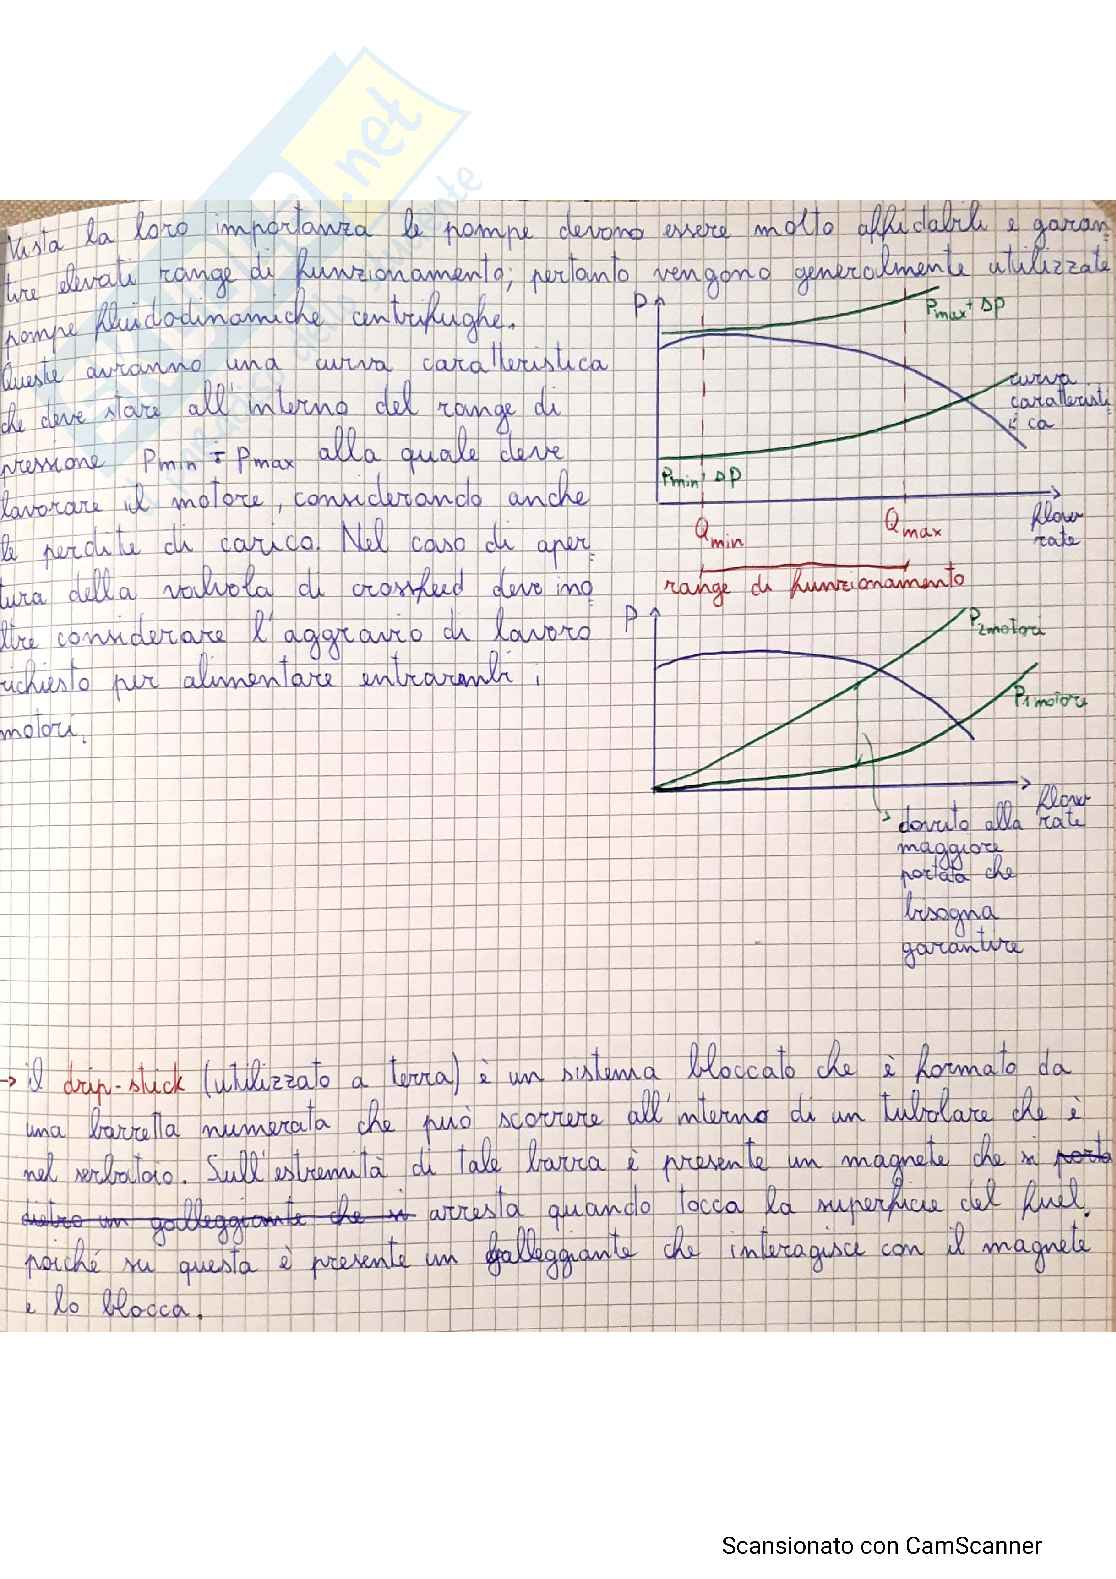 Vista la loro importanza le pompe devono essere molto affidabili e garan
tire elevati range di funzionamento; pertanto vengono generalmente utilizzate
pompe fluidodinamiche centrifughe.
Queste avranno una curva caratteristica
che deve stare all'interno del range di
pressione Pmin ÷ Pmax alla quale deve
lavorare il motore, considerando anche
le perdite di carico. Nel caso di aper
tura della valvola di crossfeed devo ino
ltre considerare l'aggravio di lavoro
richiesto per alimentare entrambi i
motori.
P
Pmax + ΔP
curva
caratteristi
ca
Pmin + ΔP
Qmin
Qmax
flow
rate
range di funzionamento
P
P2motori
P1motore
flow
rate
dovuto alla
maggiore
portata che
bisogna
garantire
→ il drip-stick (utilizzato a terra) è un sistema bloccato che è formato da
una barretta numerata che può scorrere all'interno di un tubolare che è
nel serbatoio. Sull'estremità di tale barra è presente un magnete che si porta
dietro un galleggiante che si arresta quando tocca la superficie del fuel,
poiché su questa è presente un galleggiante che interagisce con il magnete
e lo blocca.
Scansionato con CamScanner
.net